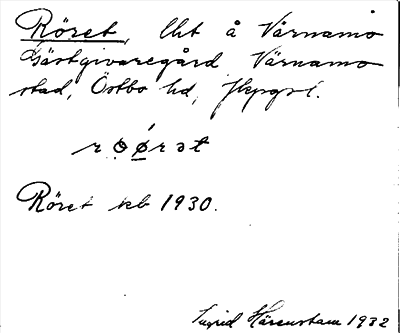 Röret, lht å Värnamo
Gästgivaregård Värnamo
stad, Östbo hd, Jkpgsl.
Röret kb 1930.
Ingrid Härenstam 1932